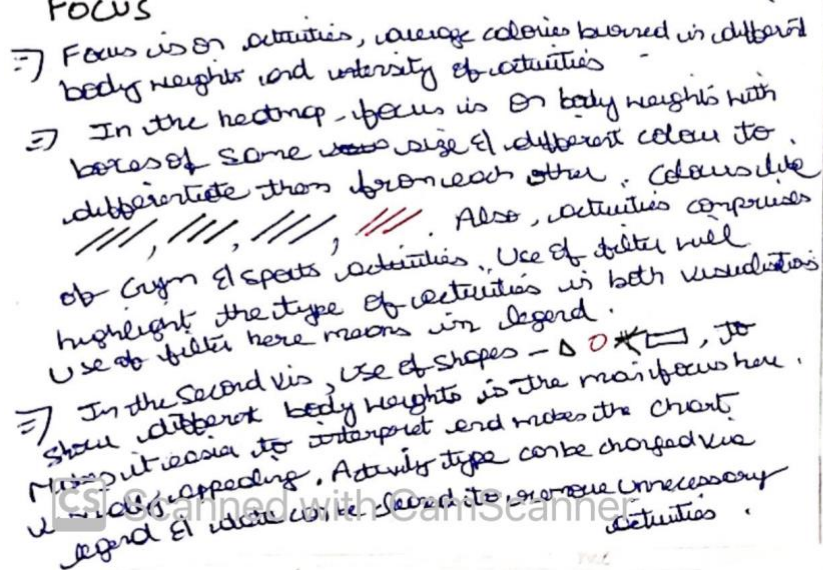 FOCUS
=> Focus is on activities, average calories burned in different
body weights and intensity of activities
=> In the heatmap, focus is on body weights with
boxes of same size & different colour to
differentiate them from each other. Colours like
, , , . Also, activities comprises
of Gym & sports activities. Use of filter will
highlight the type of activities in both visualizations
Use of filter here means in legend.
=> In the Second vis, use of shapes - , to
show different body weights is the main focus here.
Makes it easier to interpret and makes the chart
visually appealing. Activity type can be changed via
legend & can be to remove unnecessary
activities.
CS Scanned with CamScanner